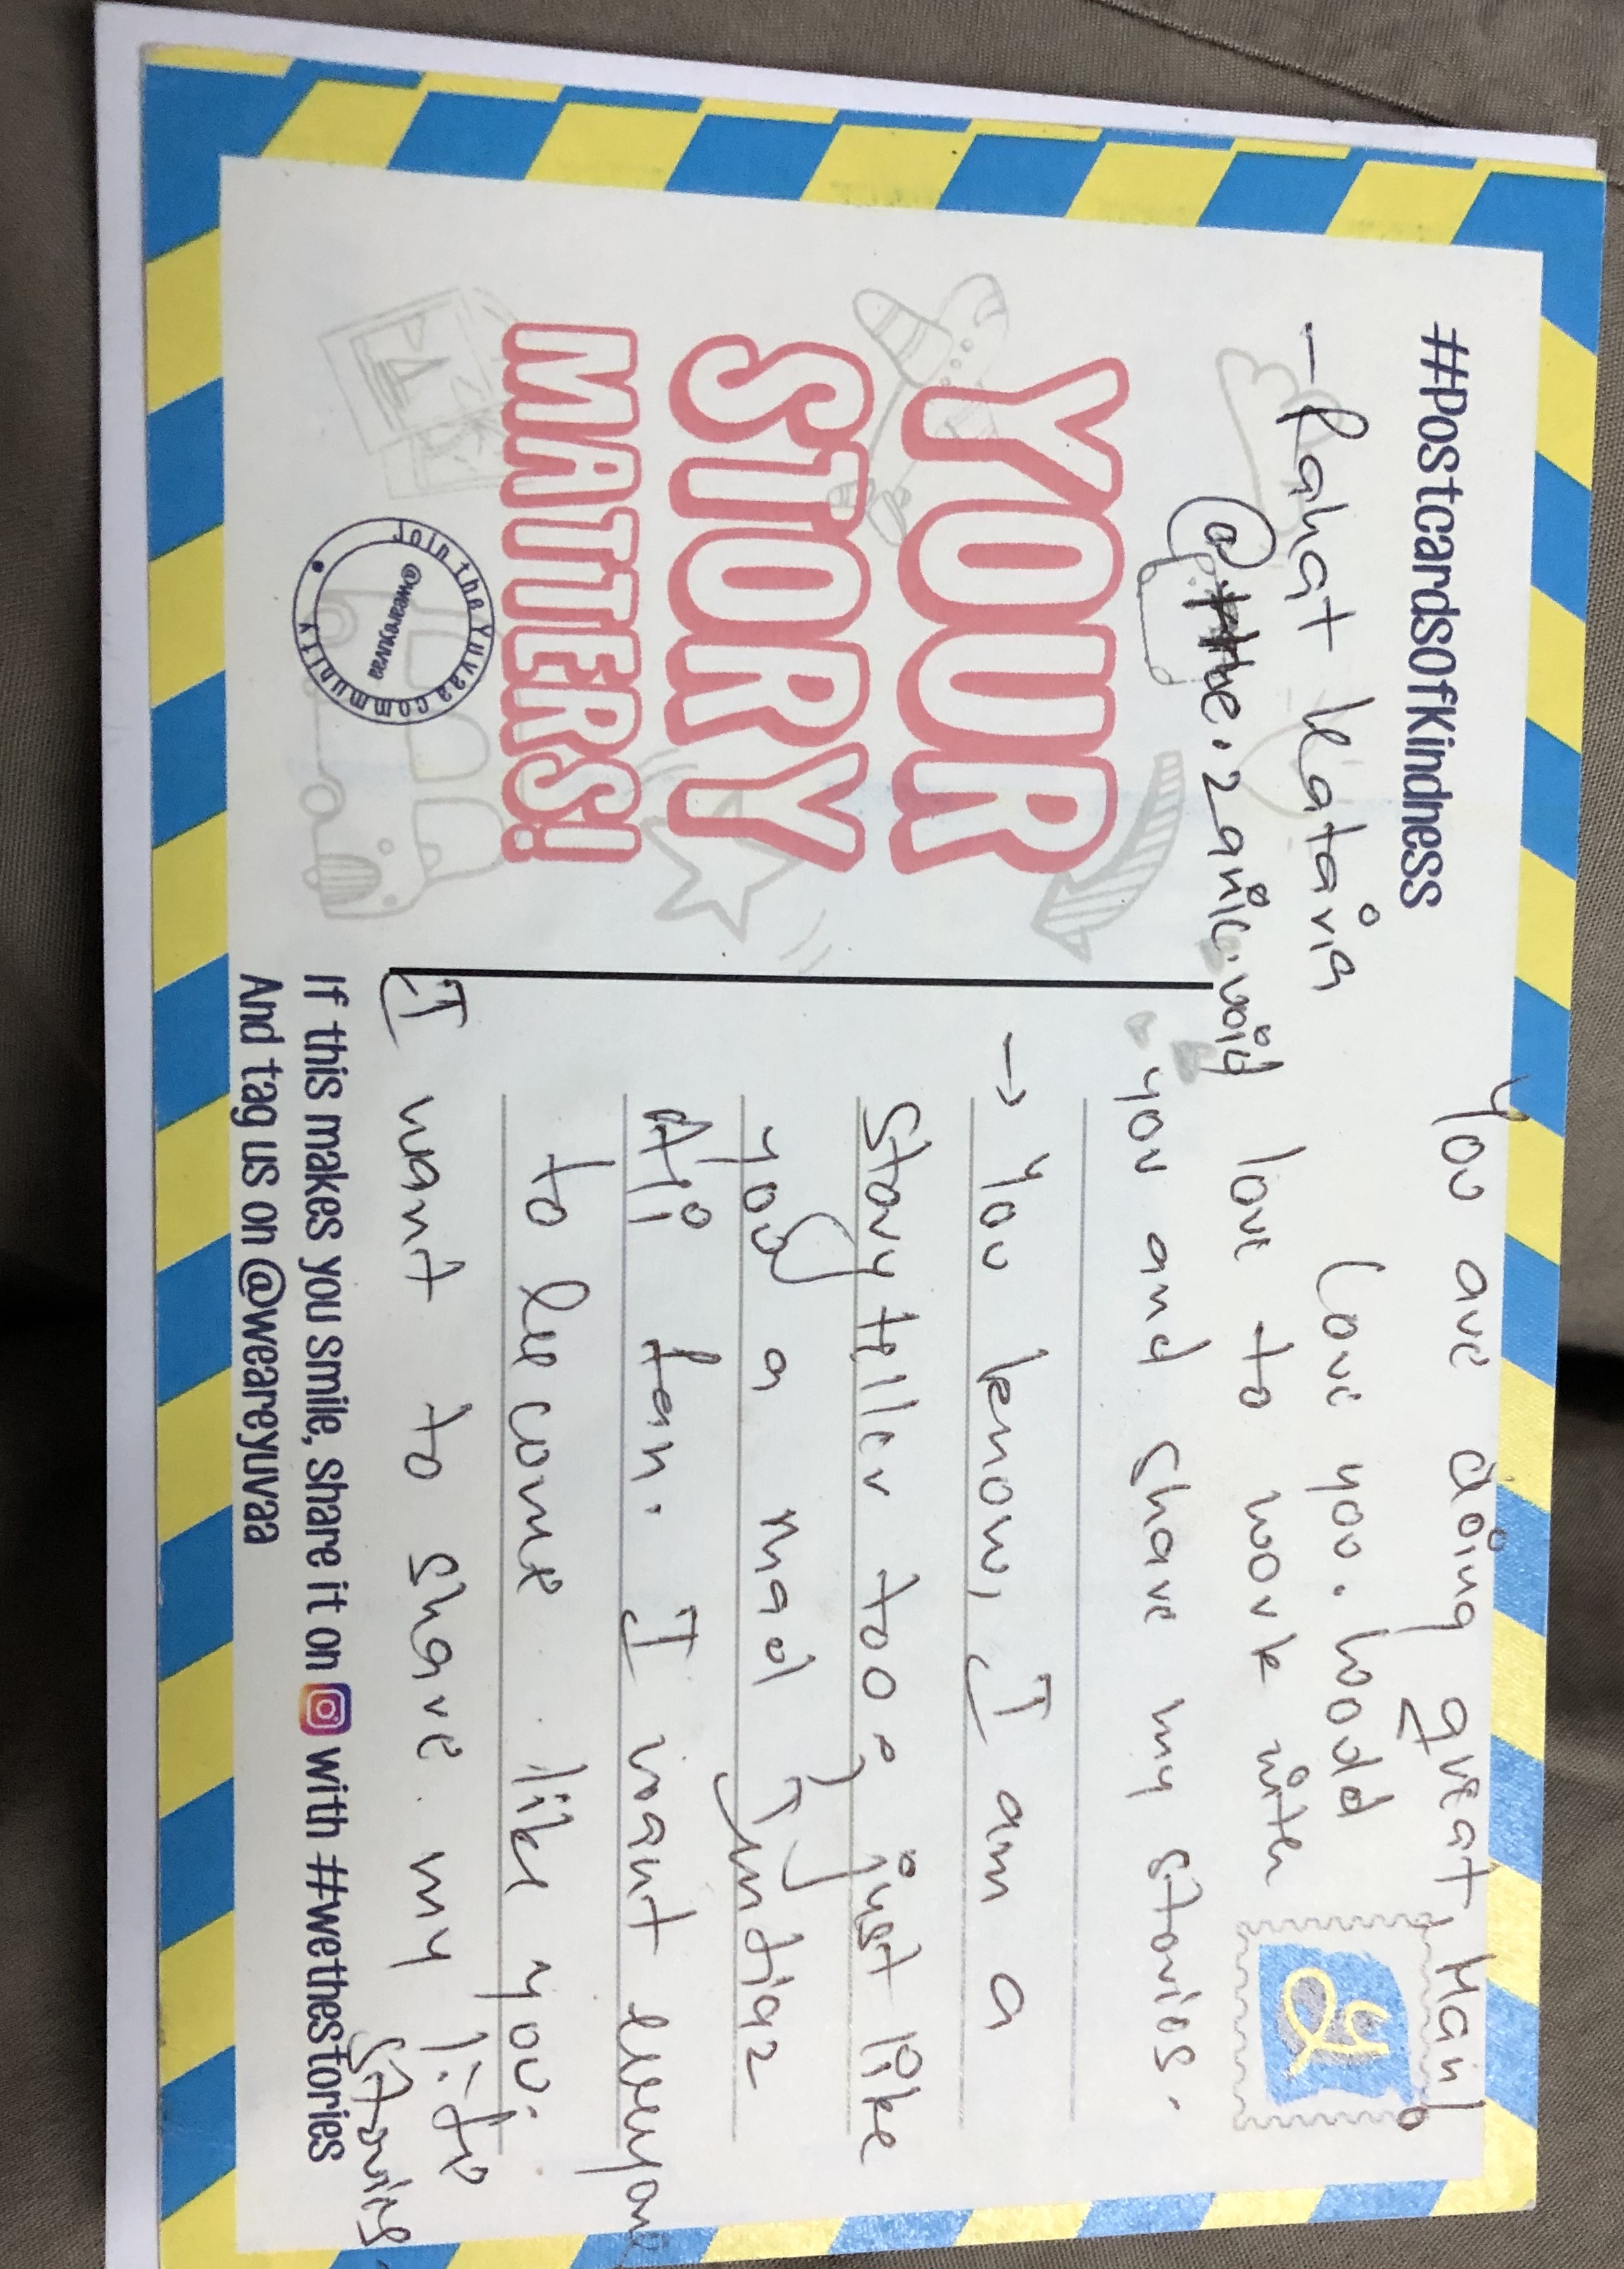 #PostcardsOfKindness
- Rahat Kataria
@the.zanic.void
YOUR
STORY
MATTERS!
Join the Yuvaa community
@weareyuvaa
You are doing great, Man!
Love you. Would
love to work with
you and share my stories.
y
→ You know, I am a
Storyteller too; just like
you a mad Imtiaz
Ali fan. I want everyone
to become like you.
I want to share my life
stories.
If this makes you smile, share it on with #wethestories
And tag us on @weareyuvaa